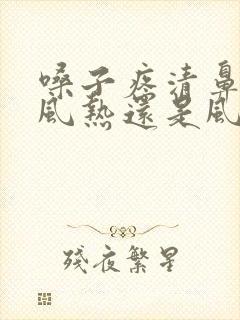 嗓子疼清鼻
風熱還是風
殘夜繁星